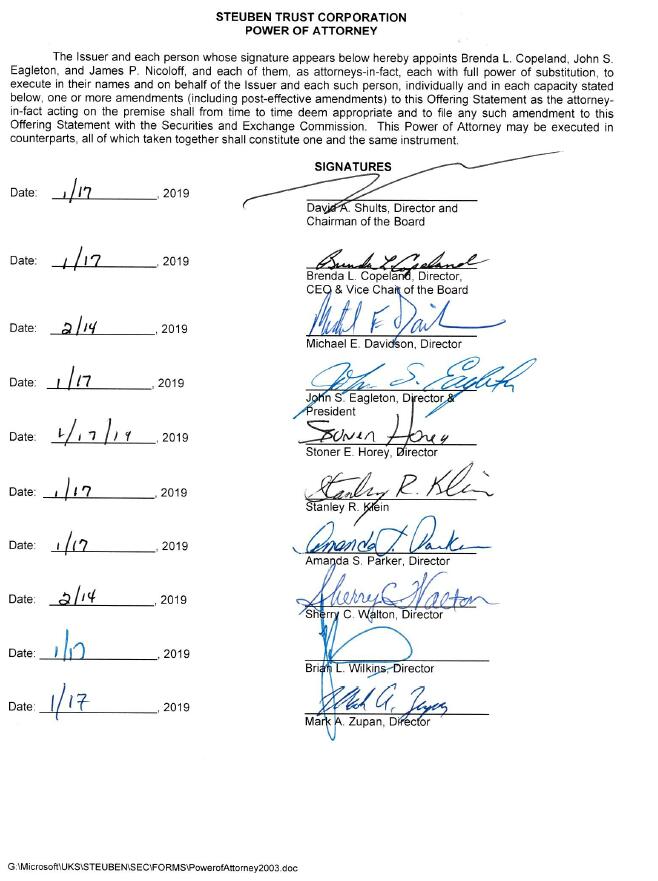 STEUBEN TRUST CORPORATION
POWER OF ATTORNEY
The Issuer and each person whose signature appears below hereby appoints Brenda L. Copeland, John S.
Eagleton, and James P. Nicoloff, and each of them, as attorneys-in-fact, each with full power of substitution, to
execute in their names and on behalf of the Issuer and each such person, individually and in each capacity stated
below, one or more amendments (including post-effective amendments) to this Offering Statement as the attorney-
in-fact acting on the premise shall from time to time deem appropriate and to file any such amendment to this
Offering Statement with the Securities and Exchange Commission. This Power of Attorney may be executed in
counterparts, all of which taken together shall constitute one and the same instrument.
SIGNATURES
Date: 1/17, 2019
David A. Shults, Director and
Chairman of the Board
Date: 1/17, 2019 Brenda L Copeland
Brenda L. Copeland, Director,
CEO & Vice Chair of the Board
Date: 2/14, 2019
Michael E. Davidson, Director
Date: 1/17, 2019 John S. Eagleton
John S. Eagleton, Director &
President
Date: 1/17/19, 2019 Stoner Horey
Stoner E. Horey, Director
Date: 1/17, 2019 Stanley R. Klein
Stanley R. Klein
Date: 1/17, 2019 Amanda S. Parker
Amanda S. Parker, Director
Date: 2/14, 2019 Sherry C Walton
Sherry C. Walton, Director
Date: 1/17, 2019
Brian L. Wilkins, Director
Date: 1/17, 2019 Mark A. Zupan
Mark A. Zupan, Director
G:\Microsoft\UKS\STEUBEN\SEC\FORMS\PowerofAttorney2003.doc